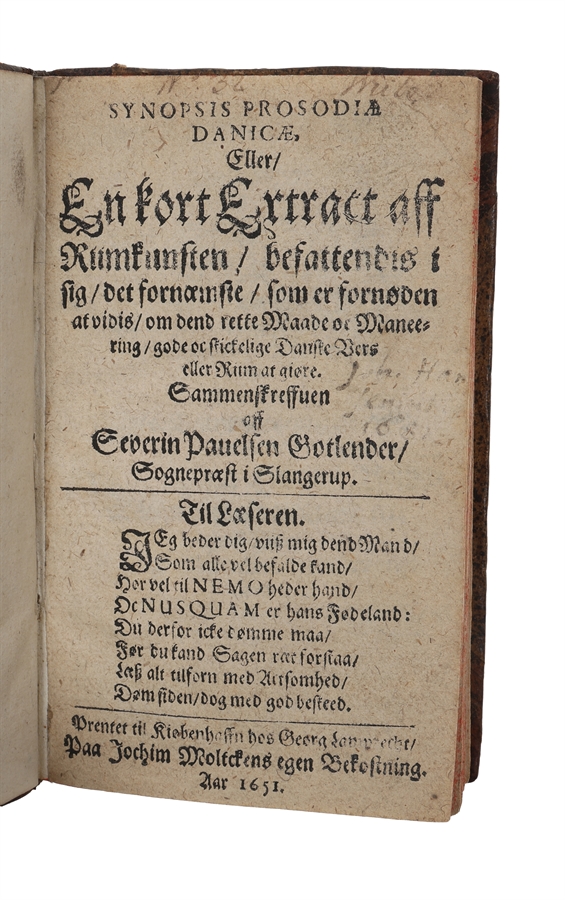 No. 32
SYNOPSIS PROSODIÆ
DANICÆ,
Eller/
En kort Extract aff
Rimkunsten / befattendis i
sig / det fornæmste / som er fornøden
at vidis / om dend rette Maade oc Manee-
ring / gode oc skickelige Danske Vers
eller Rim at giøre.
Sammenskreffuen
aff
Severin Pauelsen Gotlender /
Sognepræst i Slangerup.
Til Læseren.
JEg beder dig / viiß mig dend Mand /
Som alle vel befalde kand /
Hør vel til NEMO heder hand /
Oc NUSQUAM er hans Fødeland:
Du derfor icke dømme maa /
Før du kand Sagen ræt forstaa /
Læß alt tilforn med Artsomhed /
Døm siden / dog med god besteed.
Prentet til Kiøbenhaffn hos Georg Lamprecht /
Paa Jochim Moltckens egen Bekostning.
Aar 1651.